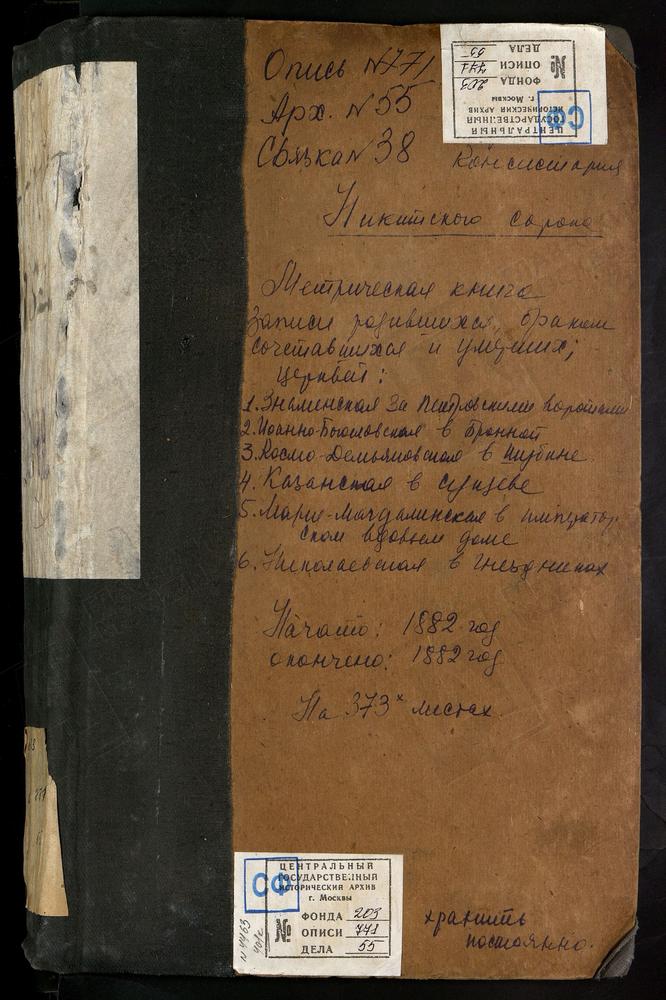 Опись №771
Арх. № 55
Связка № 38 Консистория
Никитского сорока
Метрическая книга
Записи родившихся, браком
сочетавшихся и умерших;
церквей:
1. Знаменская за Петровскими воротами
2. Иоанно-Богословская в Бронной
3. Космо-Демьяновская в Шубине
4. Казанская в Сущеве
5. Марие-Магдалинская в император
ском вдовьем доме
6. Николаевская в Гнездниках
Начато: 1882 год
окончено: 1882 год
На 373х листах.
хранить
постоянно.
ЦЕНТРАЛЬНЫЙ
ГОСУДАРСТВЕННЫЙ
ИСТОРИЧЕСКИЙ АРХИВ
г. Москвы
СФ
ФОНДА 203
№ ОПИСИ 771
ДЕЛА 55
ЦЕНТРАЛЬНЫЙ
ГОСУДАРСТВЕННЫЙ
ИСТОРИЧЕСКИЙ АРХИВ
г. Москвы
СФ
ФОНДА 203
№ ОПИСИ 771
ДЕЛА 55